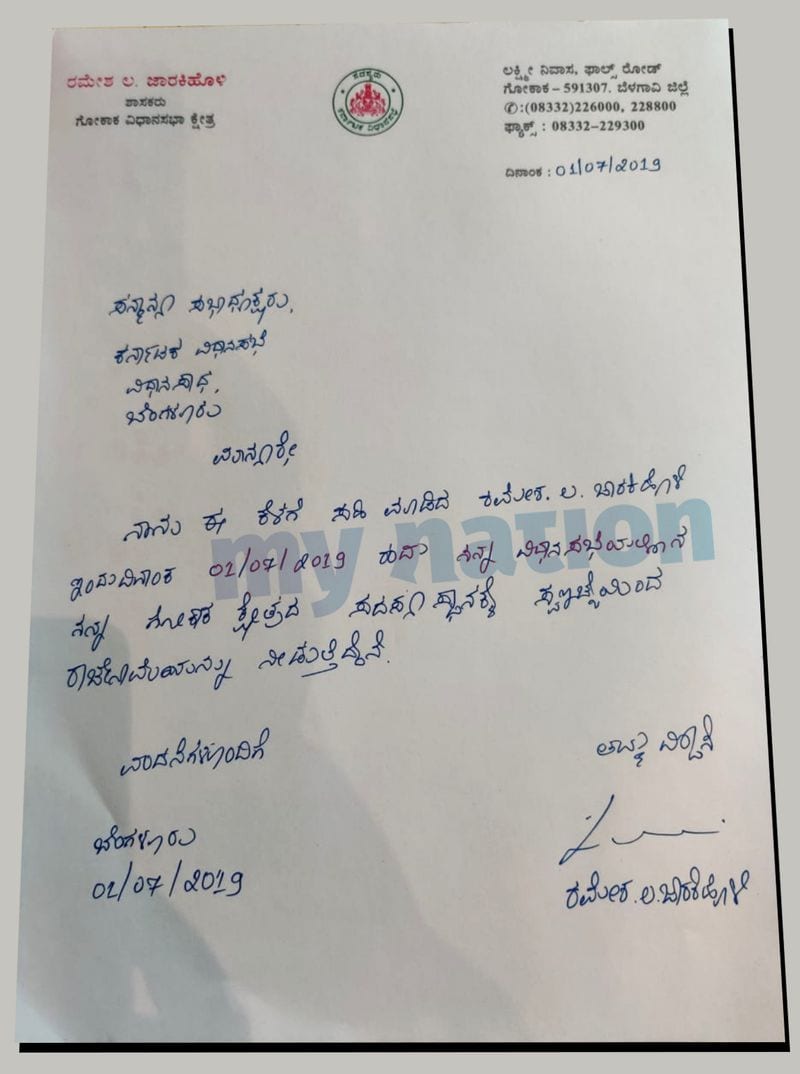 ರಮೇಶ ಲ. ಜಾರಕಿಹೊಳಿ
ಶಾಸಕರು
ಗೋಕಾಕ ವಿಧಾನಸಭಾ ಕ್ಷೇತ್ರ
ಸದಸ್ಯರು
ಕರ್ನಾಟಕ ವಿಧಾನಸಭೆ
ಲಕ್ಷ್ಮೀ ನಿವಾಸ, ಫಾಲ್ಸ್ ರೋಡ್
ಗೋಕಾಕ – 591307. ಬೆಳಗಾವಿ ಜಿಲ್ಲೆ
✆:(08332)226000, 228800
ಫ್ಯಾಕ್ಸ್ : 08332–229300
ದಿನಾಂಕ : 01/07/2019
ಸನ್ಮಾನ್ಯ ಸಭಾಧ್ಯಕ್ಷರು,
ಕರ್ನಾಟಕ ವಿಧಾನಸಭೆ
ವಿಧಾನಸೌಧ,
ಬೆಂಗಳೂರು
ಮಾನ್ಯರೇ,
ನಾನು ಈ ಕೆಳಗೆ ಸಹಿ ಮಾಡಿದ ರಮೇಶ. ಲ. ಜಾರಕಿಹೊಳಿ
ಇಂದು ದಿನಾಂಕ 01/07/2019 ನನ್ನ
my nation
ನನ್ನ ಗೋಕಾಕ ಕ್ಷೇತ್ರದ ಸದಸ್ಯ ಸ್ಥಾನಕ್ಕೆ ಸ್ವಇಚ್ಛೆಯಿಂದ
ರಾಜೀನಾಮೆಯನ್ನು ನೀಡುತ್ತಿದ್ದೇನೆ.
ವಂದನೆಗಳೊಂದಿಗೆ
ತಮ್ಮ ವಿಶ್ವಾಸಿ
ಬೆಂಗಳೂರು
01/07/2019
ರಮೇಶ. ಲ. ಜಾರಕಿಹೊಳಿ